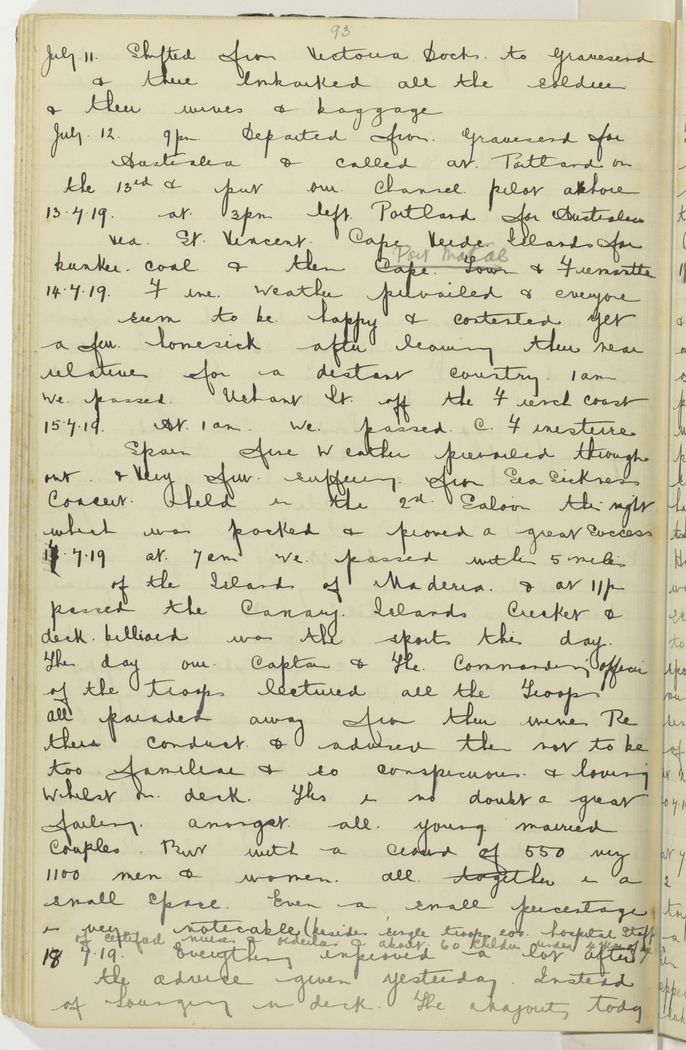 93
July. 11. Shifted from Victoria Docks. to Gravesend
& there Embarked all the soldiers
& their wives & baggage
July. 12. 9pm Departed from. Gravesend for
Australia & called at. Portland on
the 13rd & put our channel pilot ashore
13.7.19. at. 3pm left Portland for Australia
via. St. Vincent. Cape Verde Islands for
Port Natal
bunker. coal & then Cape. Town & Fremantle
14.7.19. Fine. Weather prevailed & everyone
seem to be. happy & contented yet
a few. homesick after leaving their near
relatives for a distant country. 1am
we. passed. Ushant Lt. off the French coast
15.7.19. At. 1am. We. passed C. Finisterre
Spain fine Weather prevailed through
out. & Very few. suffering from Sea Sickness
Concert. held in the 2nd. Saloon this night
which was packed & proved a great Success
17.7.19 at. 7am we. passed within 5 miles
of the Islands of Maderia. & at 11p
passed the Canary. Islands Cricket &
deck. billiard was the sports this day.
This day our. Captain & The. Commanding officer
of the troops lectured all the Troops
all paraded away from their wives Re
their conduct. & advised them not to be
too familiar & so conspicuous. & loving
Whilst on. deck. This is no doubt a great
failing. amongst. all. young married
Couples. But with a crowd of 550 very
1100 men & women. all. together in a
small space. Even a small percentage
is very noticable (besides single troops 200. hospital Staff
of certified nurses & orderlies & about. 60 children under 4 years of age
18 7.19. Everything improved a lot after
the advice given yesterday. Instead
of lounging on deck. The today